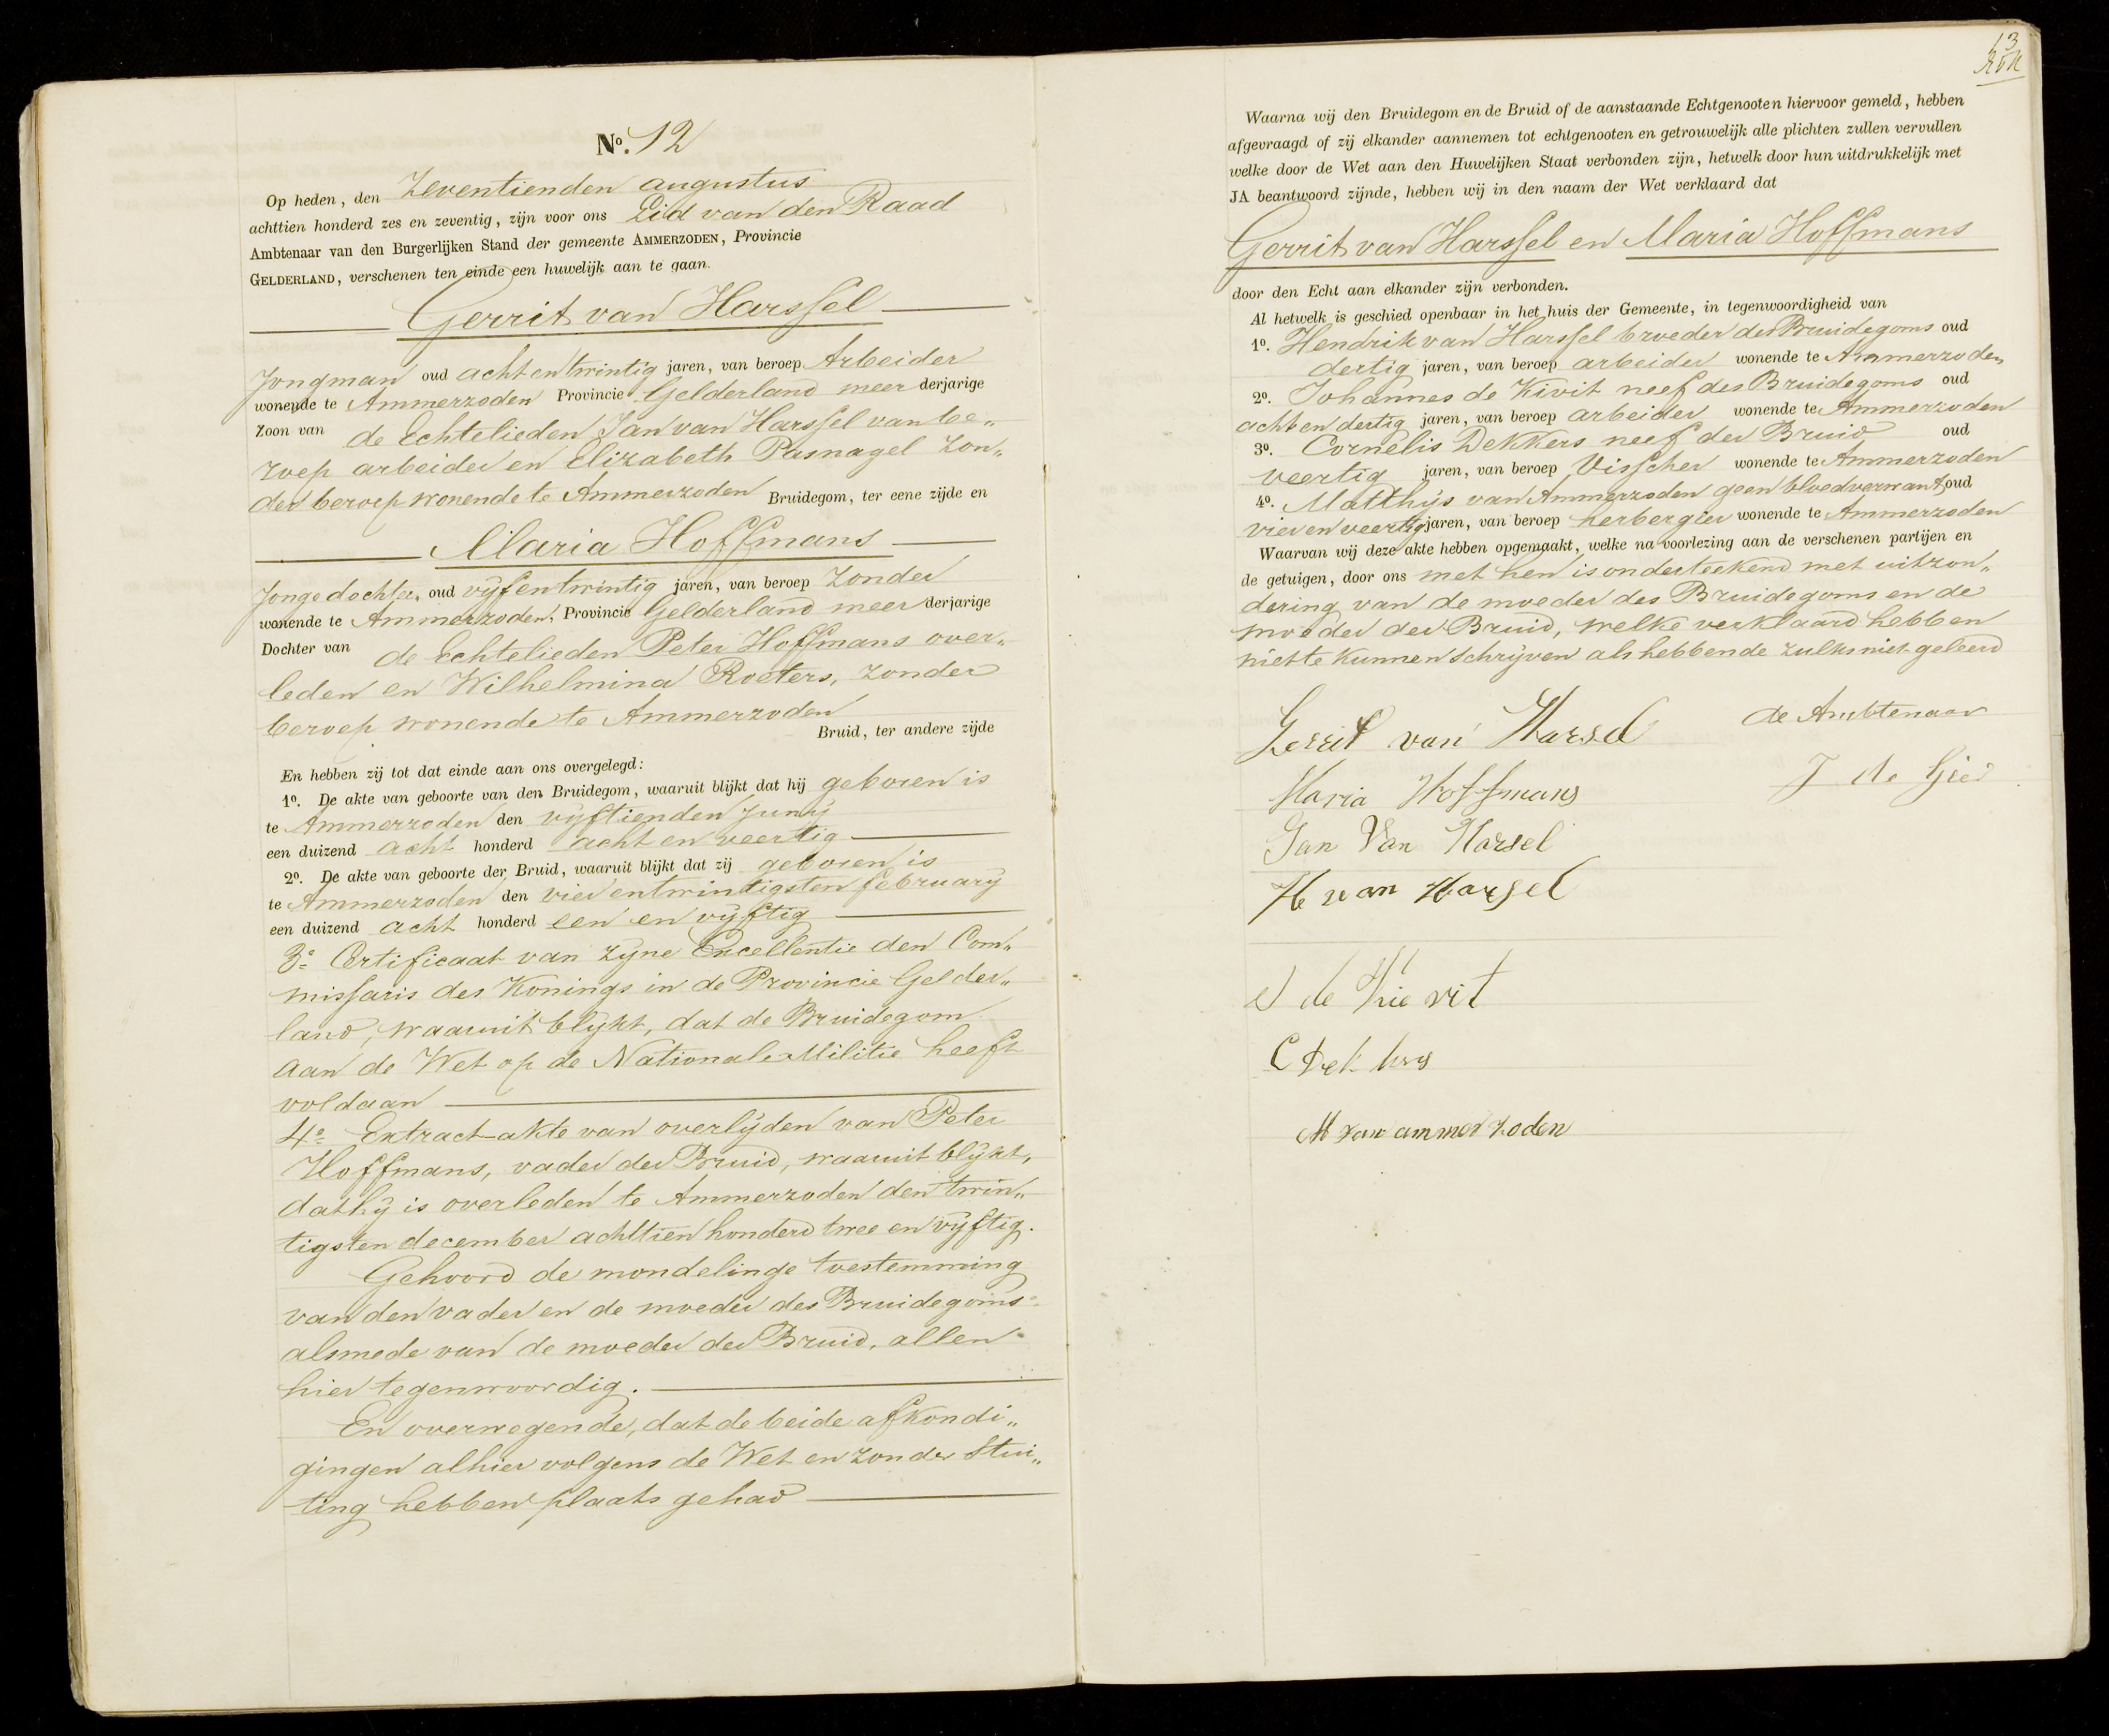 No. 12
Op heden, den Zeventienden augustus
achttien honderd zes en zeventig, zijn voor ons Lid van den Raad
Ambtenaar van den Burgerlijken Stand der gemeente AMMERZODEN, Provincie
GELDERLAND, verschenen ten einde een huwelijk aan te gaan.
Gerrit van Harssel
Jongman oud achtentwintig jaren, van beroep Arbeider
wonende te Ammerzoden Provincie Gelderland meer derjarige
Zoon van de Echtelieden Jan van Harssel van be„
roep arbeider en Elizabeth Pasnagel zon„
der beroep wonende te Ammerzoden Bruidegom, ter eene zijde en
Maria Hoffmans
Jongedochter oud vijfentwintig jaren, van beroep Zonder
wonende te Ammerzoden, Provincie Gelderland meer derjarige
Dochter van de Echtelieden Peter Hoffmans over„
leden en Wilhelmina Roeters, zonder
beroep wonende te Ammerzoden
Bruid, ter andere zijde
En hebben zij tot dat einde aan ons overgelegd:
1o. De akte van geboorte van den Bruidegom, waaruit blijkt dat hij geboren is
te Ammerzoden den vijftienden Junij
een duizend acht honderd acht en veertig
2o. De akte van geboorte der Bruid, waaruit blijkt dat zij geboren is
te Ammerzoden den vierentwintigsten february
een duizend acht honderd een en vijftig
3o Certificaat van zijne Excellentie den Com„
missaris des Konings in de Provincie Gelder„
land, waaruit blijkt, dat de Bruidegom
aan de Wet op de Nationale Militie heeft
voldaan
4o Extract-akte van overlijden van Peter
Hoffmans, vader der Bruid, waaruit blijkt,
dat hij is overleden te Ammerzoden den twin„
tigsten december achttien honderd twee en vijftig.
Gehoord de mondelinge toestemming
van den vader en de moeder des Bruidegoms
alsmede van de moeder der Bruid, allen
hier tegenwoordig.
En overwegende, dat de beide afkondi„
gingen alhier volgens de Wet en zonder Stui„
ting hebben plaats gehad
13
Waarna wij den Bruidegom en de Bruid of de aanstaande Echtgenooten hiervoor gemeld, hebben
afgevraagd of zij elkander aannemen tot echtgenooten en getrouwelijk alle plichten zullen vervullen
welke door de Wet aan den Huwelijken Staat verbonden zijn, hetwelk door hun uitdrukkelijk met
JA beantwoord zijnde, hebben wij in den naam der Wet verklaard dat
Gerrit van Harssel en Maria Hoffmans
door den Echt aan elkander zijn verbonden.
Al hetwelk is geschied openbaar in het huis der Gemeente, in tegenwoordigheid van
1o. Hendrik van Harssel broeder des Bruidegoms oud
dertig jaren, van beroep arbeider wonende te Ammerzoden
2o. Johannes de Kivit neef des Bruidegoms oud
achtendertig jaren, van beroep arbeider wonende te Ammerzoden
3o. Cornelis Dekkers neef der Bruid oud
veertig jaren, van beroep Visscher wonende te Ammerzoden
4o. Matthijs van Ammerzoden geen bloedverwant oud
vierenveertig jaren, van beroep herbergier wonende te Ammerzoden
Waarvan wij deze akte hebben opgemaakt, welke na voorlezing aan de verschenen partijen en
de getuigen, door ons met hen is onderteekend met uitzon„
dering van de moeder des Bruidegoms en de
moeder der Bruid, welke verklaard hebben
niet te kunnen schrijven als hebbende zulks niet geleerd
Gerrit van Harsel de Ambtenaar
Maria Hoffmans J de Gier
Jan Van Harsel
H van Harsel
J de Kievit
C Dekkers
M van ammerzoden